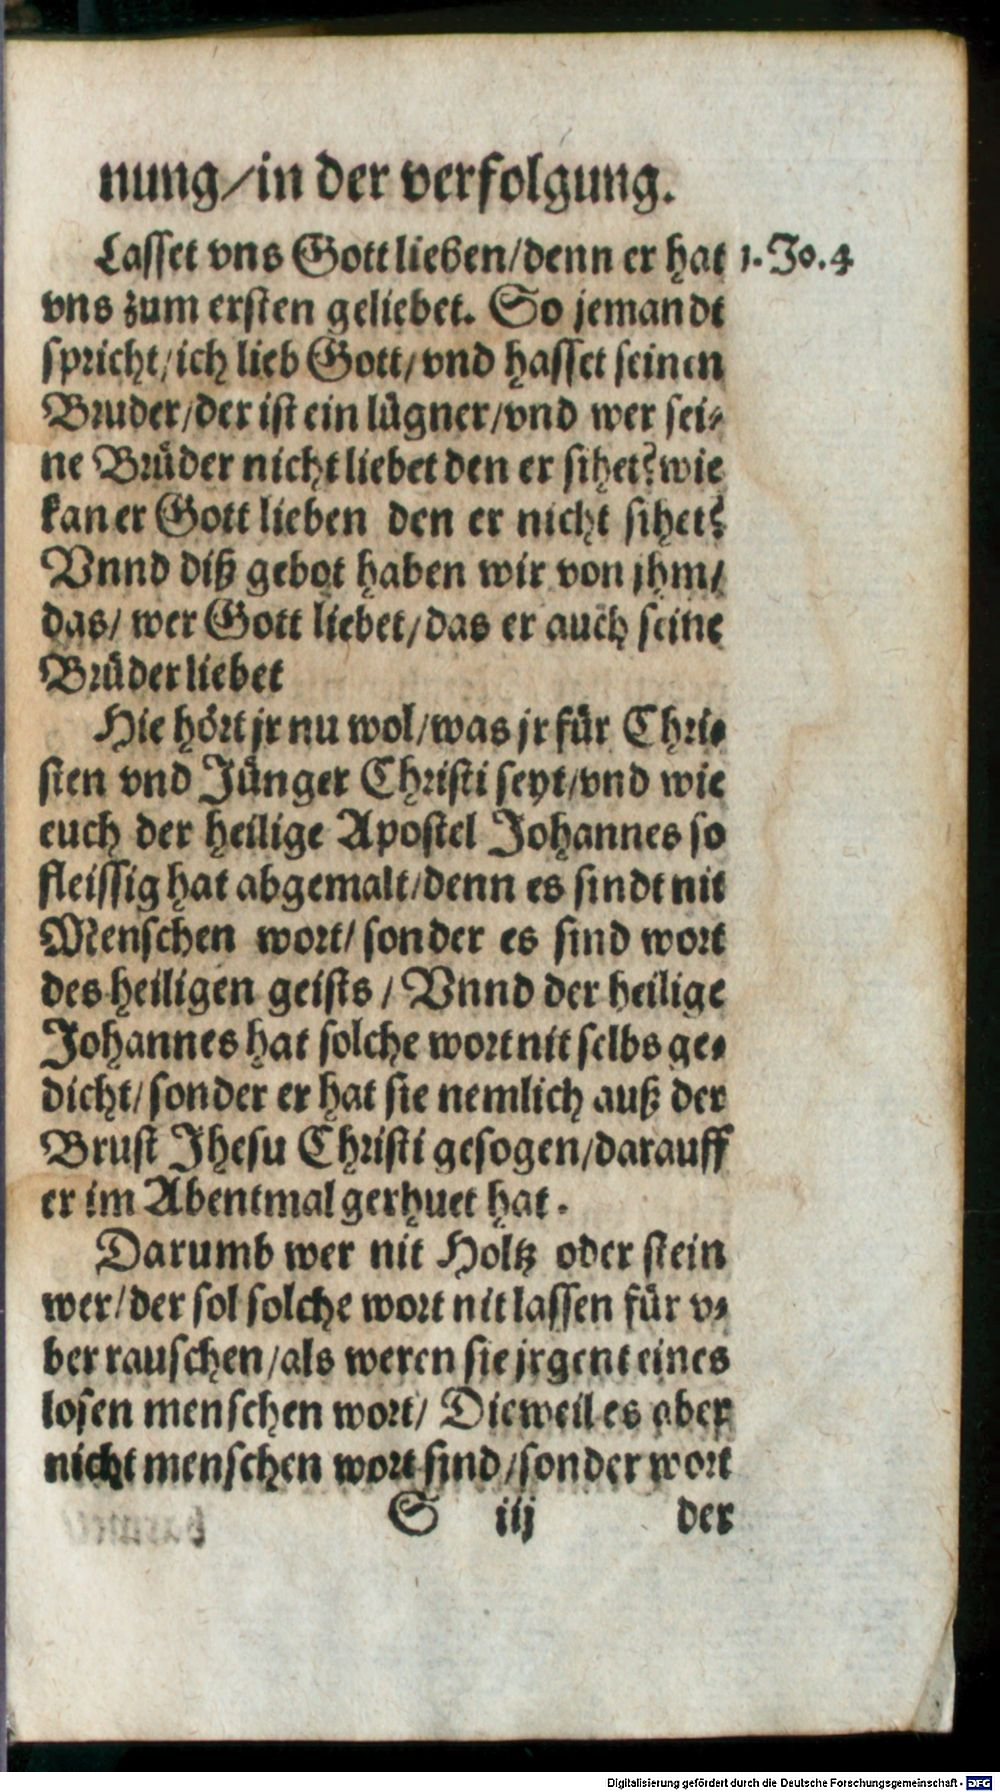 nung/in der verfolgung.
Lasset vns Gott lieben/denn er hat 1. Jo. 4
vns zum ersten geliebet. So jemandt
spricht/ich lieb Gott/vnd hasset seinen
Bruder/der ist ein lügner/vnd wer sei⸗
ne Brüder nicht liebet den er sihet? wie
kan er Gott lieben den er nicht sihet?
Vnnd diß gebot haben wir von jhm/
das/ wer Gott liebet/das er auch seine
Brüder liebet
Hie hört jr nu wol/was jr für Chri⸗
sten vnd Jünger Christi seyt/vnd wie
euch der heilige Apostel Johannes so
fleissig hat abgemalt/denn es sindt nit
Menschen wort/ sonder es sind wort
des heiligen geists / Vnnd der heilige
Johannes hat solche wort nit selbs ge⸗
dicht/sonder er hat sie nemlich auß der
Brust Jhesu Christi gesogen/darauff
er im Abentmal gerhuet hat.
Darumb wer nit Holtz oder stein
wer/der sol solche wort nit lassen für v⸗
ber rauschen/als weren sie jrgent eines
losen menschen wort/ Dieweil es aber
nicht menschen wort sind/sonder wort
S iij der
Digitalisierung gefördert durch die Deutsche Forschungsgemeinschaft - DFG